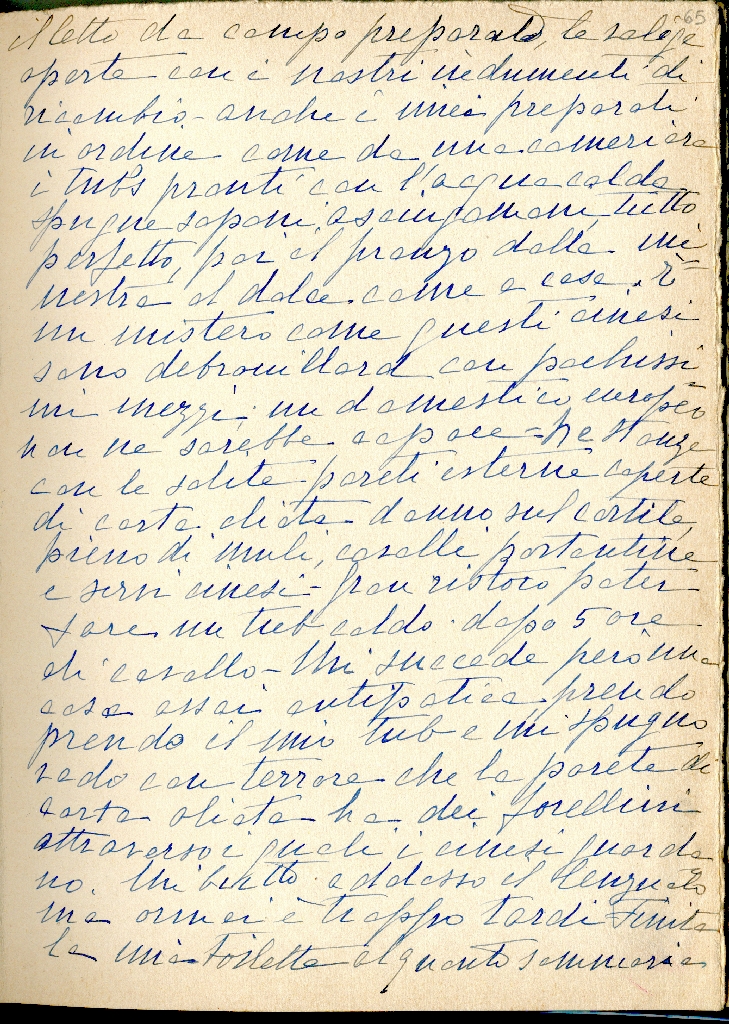 65
il letto da campo preparato, le valigie
aperte con i nostri indumenti di
ricambio - anche i miei preparati
in ordine come da una cameriera
i tubs pronti con l'acqua calda
spugne saponi, asciugamani, tutto
perfetto, poi il pranzo dalla mi=
nestra al dolce come a casa. È
un mistero come questi cinesi
sono debrouillard con pochissi=
mi mezzi, un domestico europeo
non ne sarebbe capace - Le stanze
con le solite pareti esterne coperte
di carta oliata danno sul cortile,
pieno di muli, cavalli portantine
e servi cinesi - Gran ristoro poter
fare un tub caldo dopo 5 ore
di cavallo - Mi succede però una
cosa assai antipatica, prendo
prendo il mio tub e mi spugno
vedo con terrore che la parete di
carta oliata ha dei forellini
attraverso i quali i cinesi guarda
no. Mi butto addosso il lenzuolo
ma ormai è troppo tardi Finita
la mia toilette alquanto sommaria